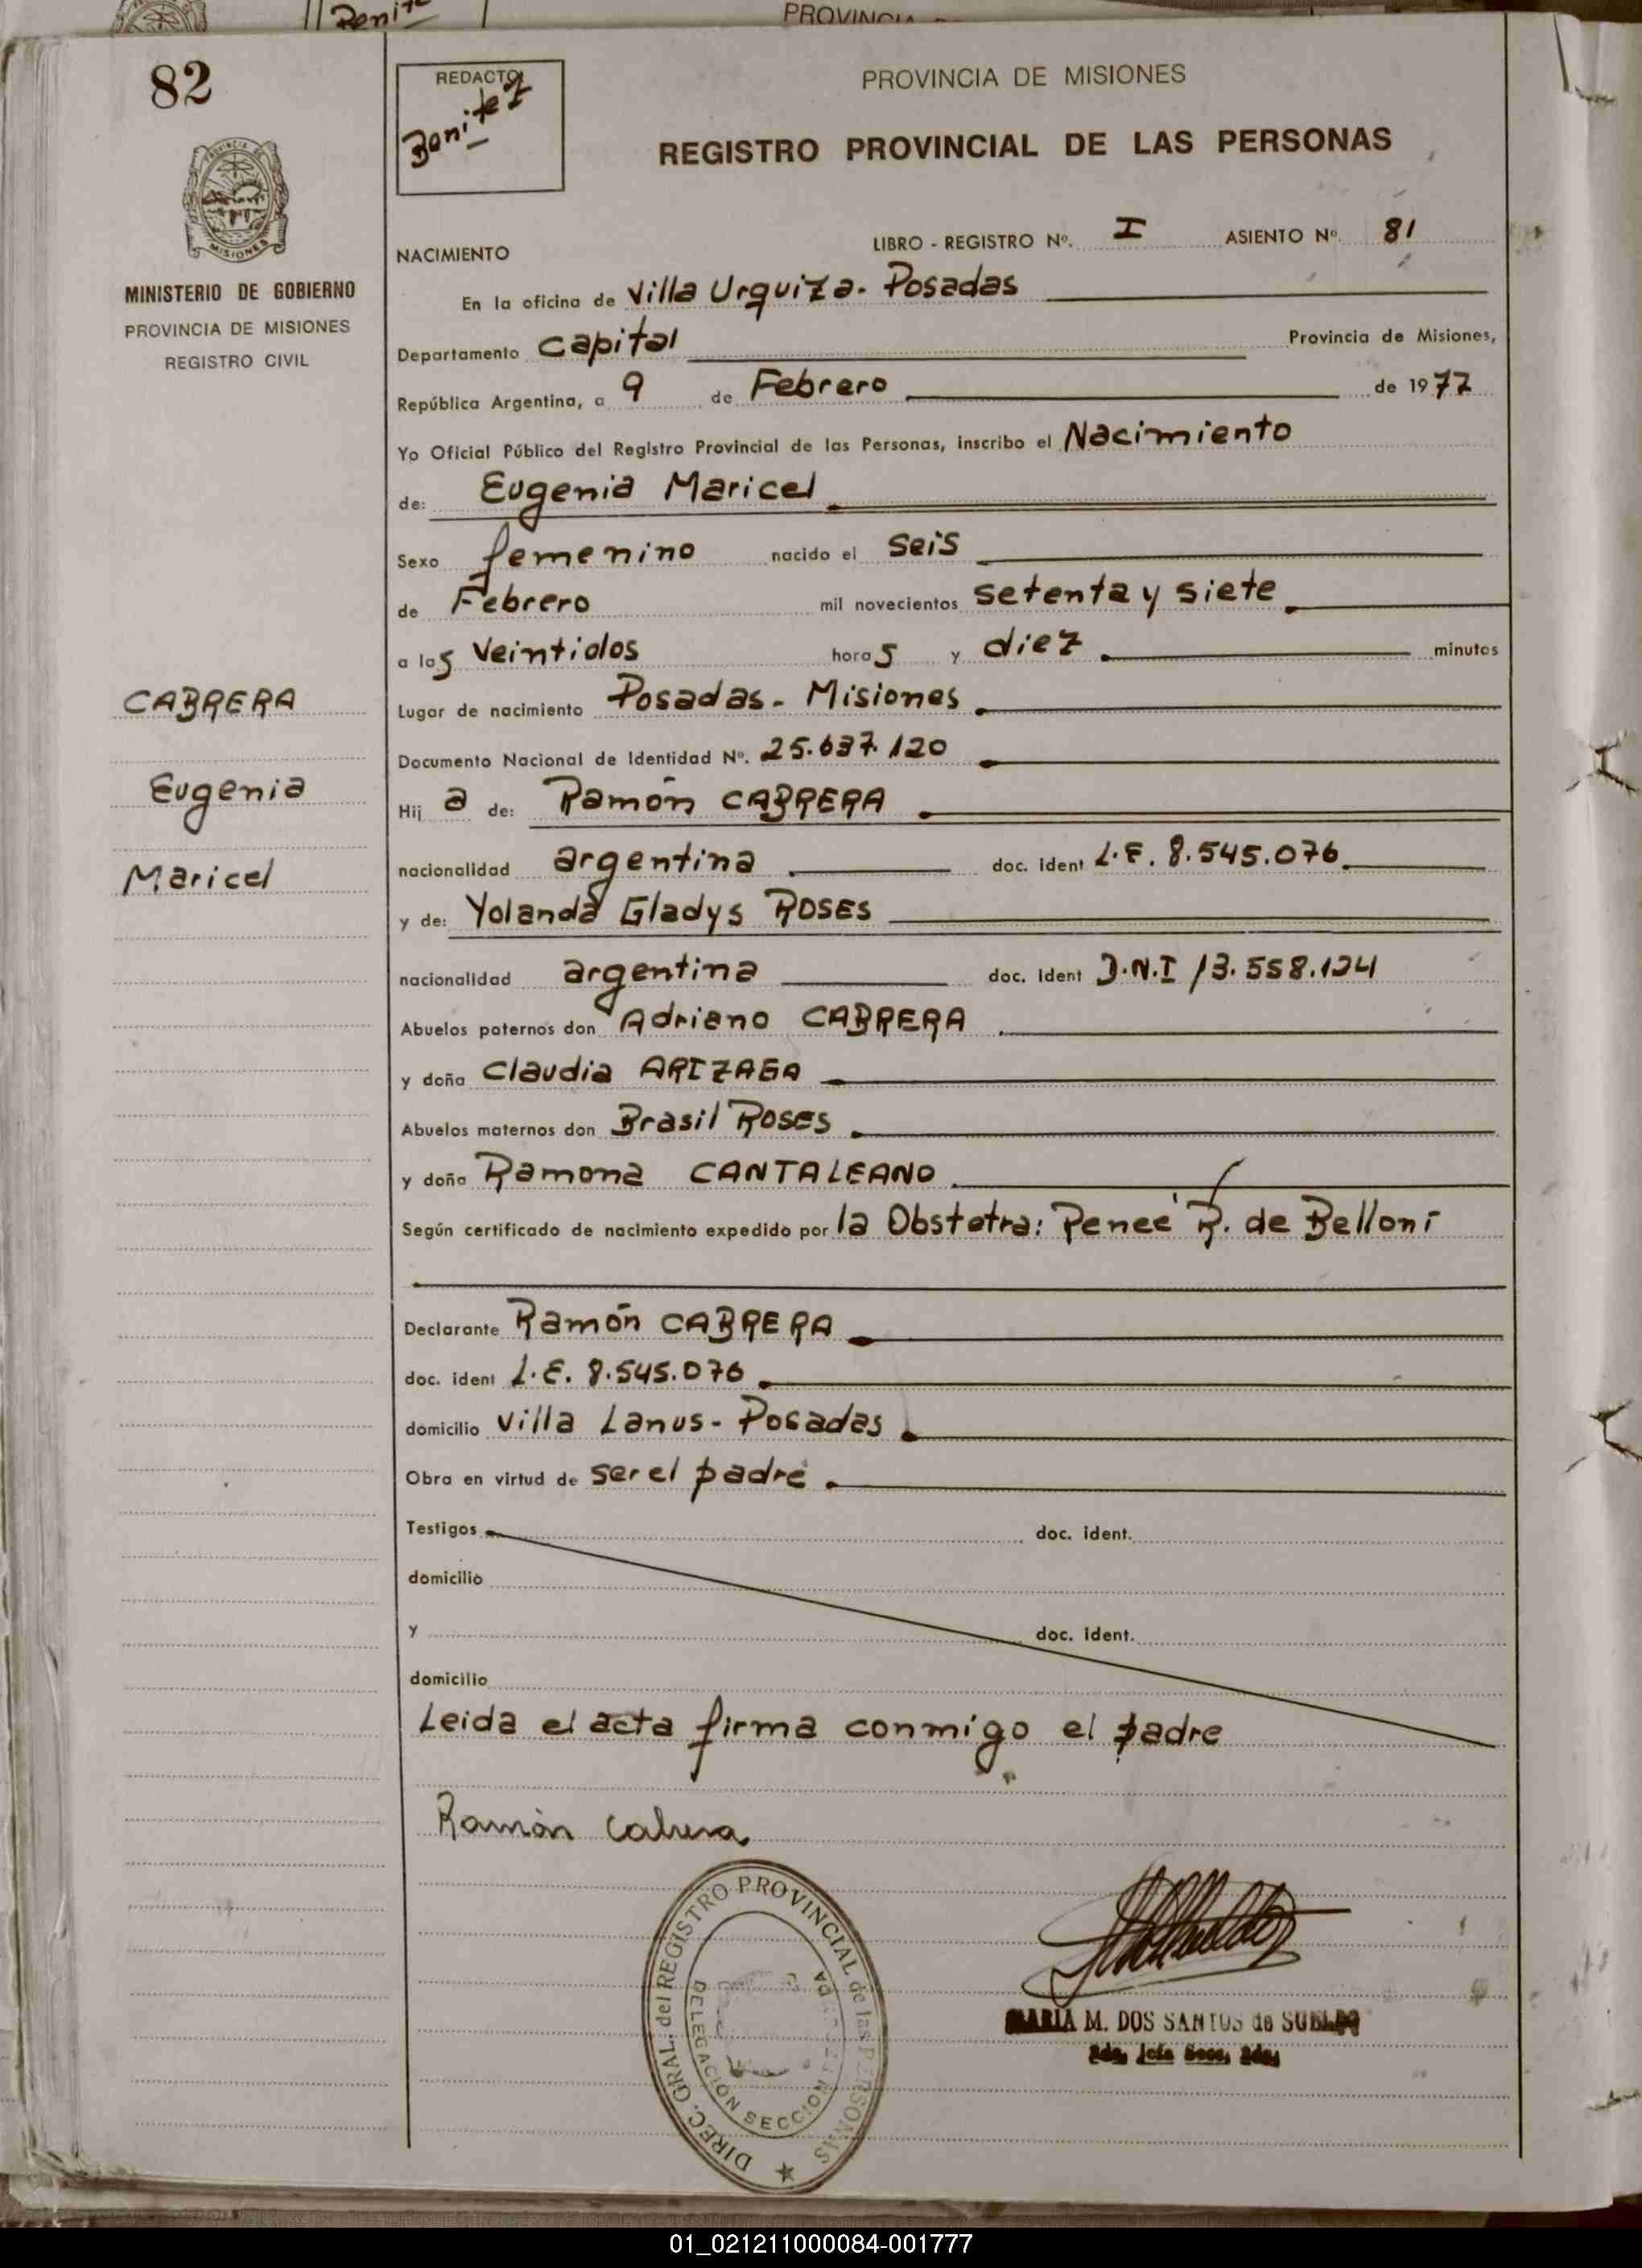 Benit
PROVINCIA
82
REDACTO
Benitez
PROVINCIA DE MISIONES
REGISTRO PROVINCIAL DE LAS PERSONAS
PROVINCIA DE
MISIONES
MINISTERIO DE GOBIERNO
PROVINCIA DE MISIONES
REGISTRO CIVIL
LIBRO - REGISTRO Nº. I ASIENTO Nº 81
NACIMIENTO
En la oficina de Villa Urquiza - Posadas
Departamento Capital Provincia de Misiones,
República Argentina, a 9 de Febrero de 1977
Yo Oficial Público del Registro Provincial de las Personas, inscribo el Nacimiento
de: Eugenia Maricel
Sexo femenino nacido el seis
de Febrero mil novecientos setenta y siete
a las veintidos horas y diez minutos
Lugar de nacimiento Posadas - Misiones
Documento Nacional de Identidad Nº. 25.637.120
Hija de: Ramón CABRERA
nacionalidad argentina doc. ident L.E. 8.545.076
y de: Yolanda Gladys ROSES
nacionalidad argentina doc. ident D.N.I 13.558.124
Abuelos paternos don Adriano CABRERA
y doña Claudia ARIZAGA
Abuelos maternos don Brasil ROSES
y doña Ramona CANTALEANO
Según certificado de nacimiento expedido por la Obstetra: Reneé R. de Belloni
Declarante Ramón CABRERA
doc. ident L.E. 8.545.076
domicilio Villa Lanus - Posadas
Obra en virtud de ser el padre
Testigos doc. ident.
domicilio
y doc. ident.
domicilio
Leida el acta firma conmigo el padre
Ramón Cabrera
CABRERA
Eugenia
Maricel
DIREC. GRAL. del REGISTRO PROVINCIAL de las PERSONAS
DELEGACION SECCION
MARIA M. DOS SANTOS de SUELDO
01_021211000084-001777